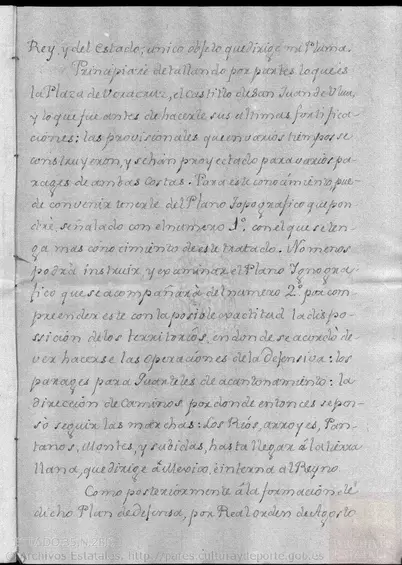 Rey, y del Estado; unico objeto que dirige mi Pluma.
Principiaré detallando por partes lo que es
la Plaza de Veracruz, el Castillo de San Juan de Ulua,
y lo que fue antes de hacerle sus ultimas fortifica-
ciones; las provisionales que en varios tiempos se
construyeron, y se hán proyectado para varios pa-
rages de ambas Costas. Para este conocimiento, pue-
de convenir tenerse del Plano Topografico que pon-
dré, señalado con el numero 1º. con el que se ten-
ga mas conocimiento de este tratado. No menos
podrá instruir, y examinar el Plano Ignogra-
fico que se acompañará del numero 2º. por com-
preender este con la posible exactitud la dispo-
ssición de los territorios, en donde se acordó de-
ver hacerse las operaciones de la defensiva: los
parages para Quarteles de acantonamiento: la
dirección de Caminos por donde entonces se pen-
só seguir las marchas: Los Rios, arroyos, Pan-
tanos, Montes, y subidas, hasta llegar á la tierra
llana, que dirige á Mexico, é interna al Reyno.
Como posteriormente á la formación de
dicho Plan de defensa, por Real orden de Agosto
Archivos Estatales, http://pares.culturaydeporte.gob.es